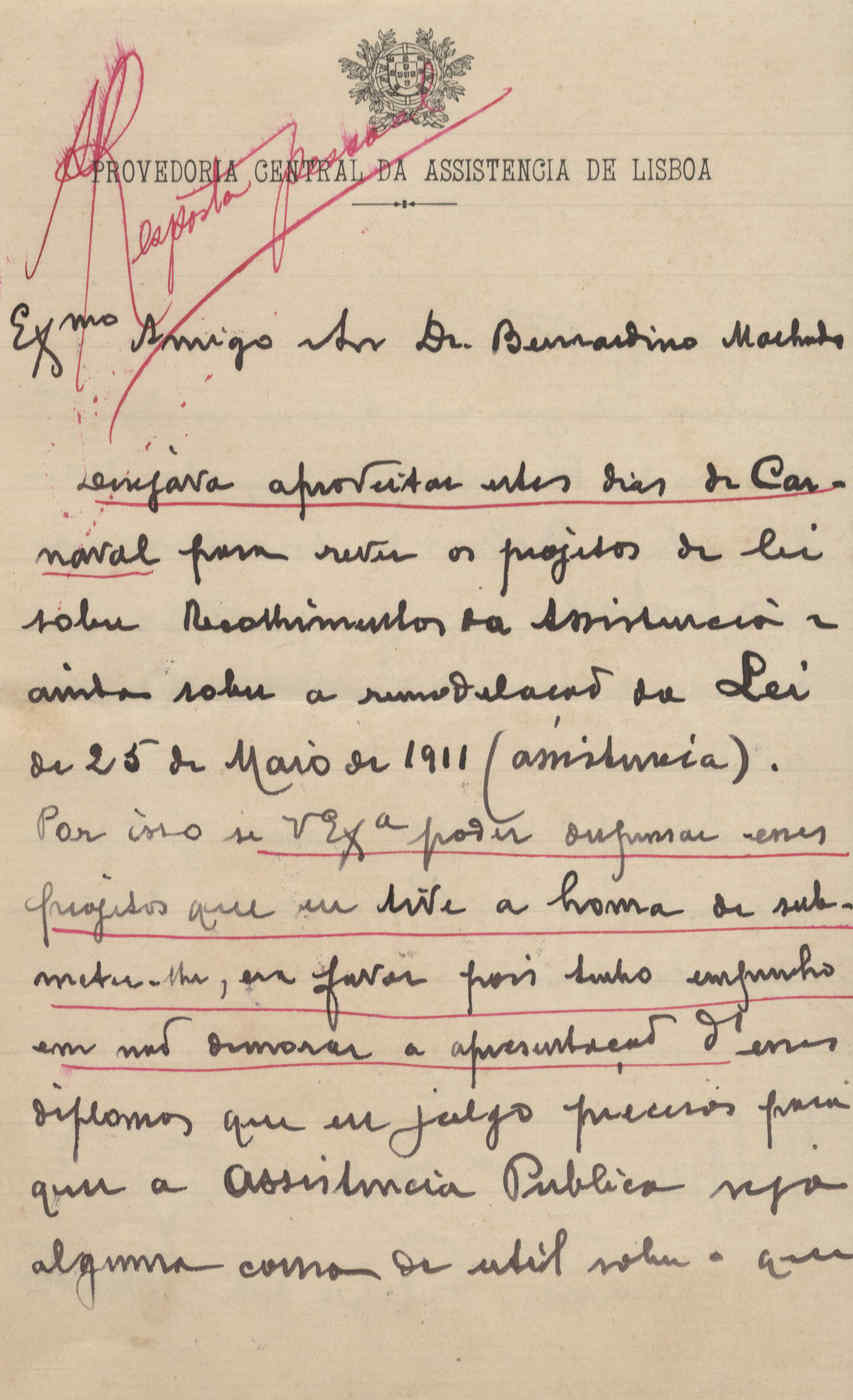 Resposta pessoal
PROVEDORIA CENTRAL DA ASSISTENCIA DE LISBOA
Exmo Amigo e Snr Dr. Bernardino Machado
Desejava aproveitar estes dias de Car-
naval para rever os projetos de lei
sobre Recolhimentos da Assistencia e
ainda sobre a remodelação da Lei
de 25 de Maio de 1911 (assistencia).
Por isso se VExa poder dispensar esses
projetos que eu tive a honra de sub-
meter-lhe, era favor pois tenho empenho
em não demorar a apresentação d'esses
diplomas que eu julgo precisos para
que a Assistencia Publica seja
alguma coisa de util sobre o que